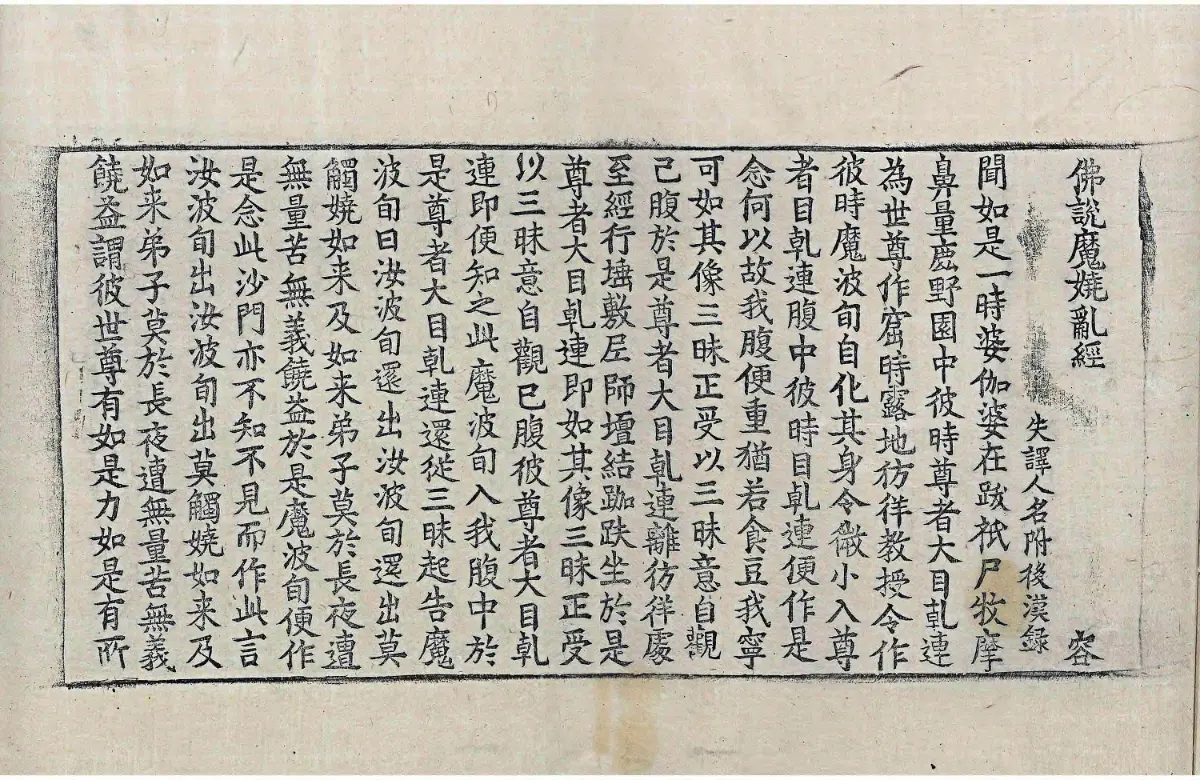 佛說魔嬈亂經 容
失譯人名附後漢録
聞如是一時婆伽婆在跋祇尸牧摩
鼻量鹿野園中彼時尊者大目乹連
為世尊作窟時露地彷徉教授令作
彼時魔波旬自化其身令微小入尊
者目乹連腹中彼時目乹連便作是
念何以故我腹便重猶若食豆我寧
可如其像三昧正受以三昧意自觀
己腹於是尊者大目乹連離彷徉處
至經行埵敷尼師壇結跏趺坐於是
尊者大目乹連即如其像三昧正受
以三昧意自觀己腹彼尊者大目乹
連即便知之此魔波旬入我腹中於
是尊者大目乹連還從三昧起告魔
波旬曰汝波旬還出汝波旬還出莫
觸嬈如来及如来弟子莫於長夜遭
無量苦無義饒益於是魔波旬便作
是念此沙門亦不知不見而作此言
汝波旬出汝波旬出莫觸嬈如来及
如来弟子莫於長夜遭無量苦無義
饒益謂彼世尊有如是力如是有所